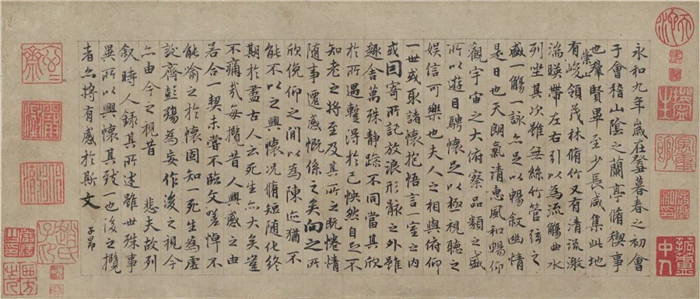 永和九年歲在癸丑暮春之初會
于會稽山陰之蘭亭脩禊事
也羣賢畢至少長咸集此地
有崇山峻領茂林脩竹又有清流激
湍暎帶左右引以為流觴曲水
列坐其次雖無絲竹管弦之
盛一觴一詠亦足以暢敘幽情
是日也天朗氣清惠風和暢仰
觀宇宙之大俯察品類之盛
所以遊目騁懷足以極視聽之
娛信可樂也夫人之相與俯仰
一世或取諸懷抱悟言一室之內
或因寄所託放浪形骸之外雖
趣舍萬殊靜躁不同當其欣
於所遇蹔得於己怏然自足不
知老之將至及其所之既惓情
隨事遷感慨係之矣向之所
欣俛仰之間以為陳迹猶不
能不以之興懷況脩短隨化終
期於盡古人云死生亦大矣豈
不痛哉每攬昔人興感之由
若合一契未嘗不臨文嗟悼不
能喻之於懷固知一死生為虛
誕齊彭殤為妄作後之視今
亦由今之視昔 悲夫故列
敘時人錄其所述雖世殊事
異所以興懷其致一也後之攬
者亦將有感於斯文
子昂